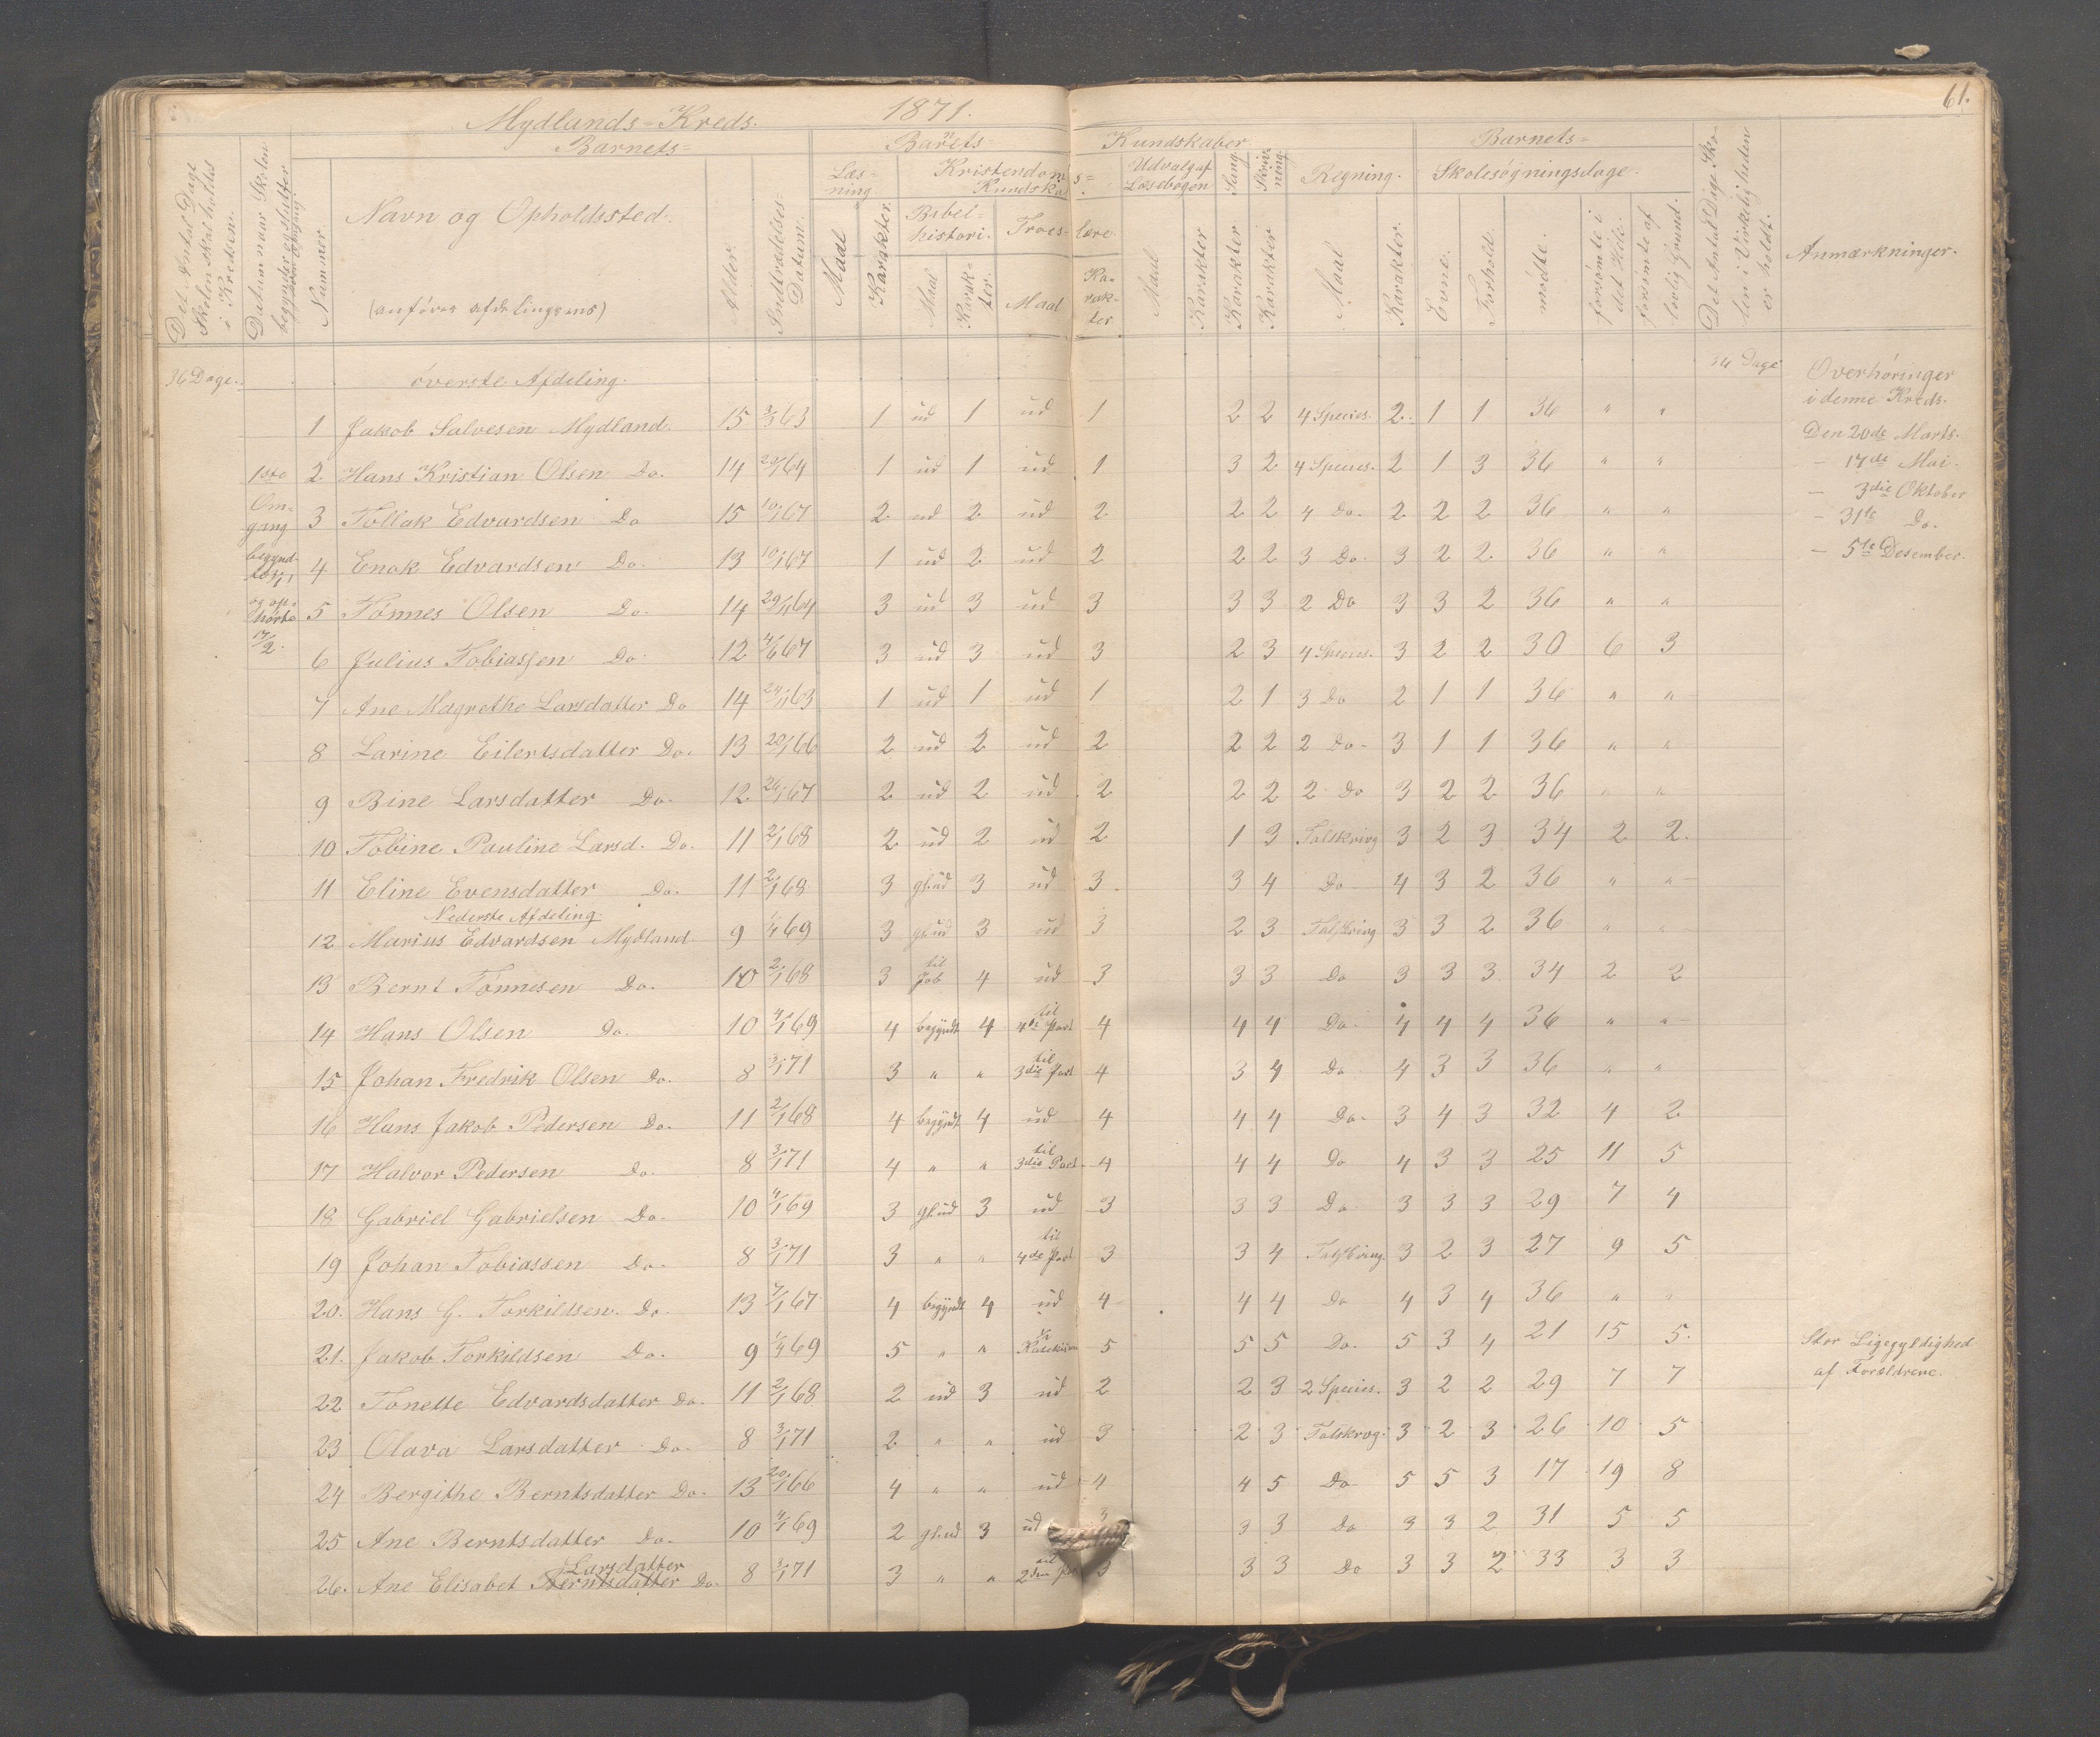 61.
Mydlands-Kreds. 1871.
Barnets= Barnets Kundskaber Barnets=
Det Antal Dage Skolen skal holdes i Kredsen.
Datum naar Skolen begynder og slutter
Nummer.
Navn og Opholdssted.
(anføres afdelingsvis)
Alder.
Indtrædelses Datum.
Læsning. Maal Karakter.
Kristendoms= Kundskab
Bibelhistori. Maal Karakter.
Troeslære. Maal Karakter
Udvalg af Læsebogen Maal Karakter
Sang. Karakter
Skrivning. Karakter
Regning. Maal Karakter.
Skolesøgningsdage.
Evne. Forhold. mødte. forsømte i det Hele. forsømte af lovlig Grund.
Det Antal Dage Skolen i Virkeligheden er holdt.
Anmærkninger.
36 Dage. øverste Afdeling. 36 Dage Overhøringer
i denne Kreds.
1 Jakob Salvesen Mydland. 15 3/3 63 1 ud 1 ud 1 2 2 4 Species. 2 1 1 36 " " Den 20de Marts.
2 Hans Kristian Olsen Do. 14 64 1 ud 1 ud 1 3 2 4 Species. 2 1 3 36 " " — 17de Mai.
— 3die Oktober
3 Tollak Edvardsen Do 15 10/1 67 2 ud 2 ud 2 2 2 4 Do. 2 2 2 36 " " — 31te Do.
4 Enok Edvardsen Do. 13 10/1 67 1 ud 2 ud 2 2 2 3 Do. 3 2 2 36 " " — 5te Desember.
1ste Omgang begyndte og ophørte 17/2.
5 Tønnes Olsen Do. 14 29/11 64 3 ud 3 ud 3 3 3 2 Do 3 3 2 36 " "
6 Julius Tobiassen Do. 12 67 3 ud 3 ud 3 2 3 4 Species. 3 2 2 30 6 3
7 Ane Magrethe Larsdatter Do 14 24/11 63 1 ud 1 ud 1 2 1 3 Do 2 1 1 36 " "
8 Larine Eilertsdatter Do. 13 20/1 66 2 ud 2 ud 2 2 2 2 Do. 3 1 1 36 " "
9 Bine Larsdatter Do. 12 67 2 ud 2 ud 2 2 2 2 Do 3 2 2 36 " "
10 Tobine Pauline Larsd. Do. 11 2/1 68 2 ud 2 ud 2 1 3 Talskrivg 3 2 3 34 2 2.
11 Eline Evensdatter Do. 11 2/1 68 3 gl.ud 3 ud 3 3 4 Do 4 3 2 36 " "
Nederste Afdeling.
12 Marius Edvardsen Mydland 9 69 3 gl.ud 3 ud 3 2 3 Talskrivg 3 3 2 36 " "
13 Bernt Tønnesen Do. 10 2/1 68 3 til Job 4 ud 3 3 3 Do 3 3 3 34 2 2
14 Hans Olsen Do. 10 4/1 69 4 begyndt 4 til 4de Part 4 4 4 Do. 4 4 4 36 " "
15 Johan Fredrik Olsen Do. 8 3/1 71 3 " " til 3die Part 4 3 4 Do 4 3 3 36 " "
16 Hans Jakob Pedersen Do. 11 2/1 68 4 begyndt 4 ud 4 4 4 Do. 3 4 3 32 4 2
17 Halvor Pedersen Do. 8 3/1 71 4 " " til 3die Part 4 4 4 Do 4 3 3 25 11 5
18 Gabriel Gabrielsen Do. 10 4/1 69 3 gl.ud 3 ud 3 3 3 Do 3 3 3 29 7 4
19 Johan Tobiassen Do. 8 3/1 71 3 " " til 4de Part 3 3 4 Talskrivg. 3 2 3 27 9 5
20. Hans G. Torkildsen. Do. 13 67 4 begyndt 4 ud 4 4 4 Do 4 3 4 36 " "
21. Jakob Torkildsen Do. 9 69 5 " " 5 5 5 Do. 5 3 4 21 15 5. Stor Ligegyldighed
af Forældrene.
22 Tonette Edvardsdatter Do. 11 2/1 68 2 ud 3 ud 2 2 3 2 Species. 3 2 2 29 7 7
23 Olava Larsdatter Do. 8 3/1 71 2 " " ud 3 2 3 Talskrvg. 3 2 3 26 10 5
24 Bergithe Berntsdatter Do. 13 20/1 66 4 " " ud 4 4 5 Do 5 5 3 17 19 8
25 Ane Berntsdatter Do. 10 4/1 69 2 gl.ud 3 ud 3 3 3 Do 3 3 2 31 5 5
26. Ane Elisabet Berntsdatter Larsdatter Do. 8 3/1 71 3 " " til 2den 3 3 3 Do 3 3 2 33 3 3